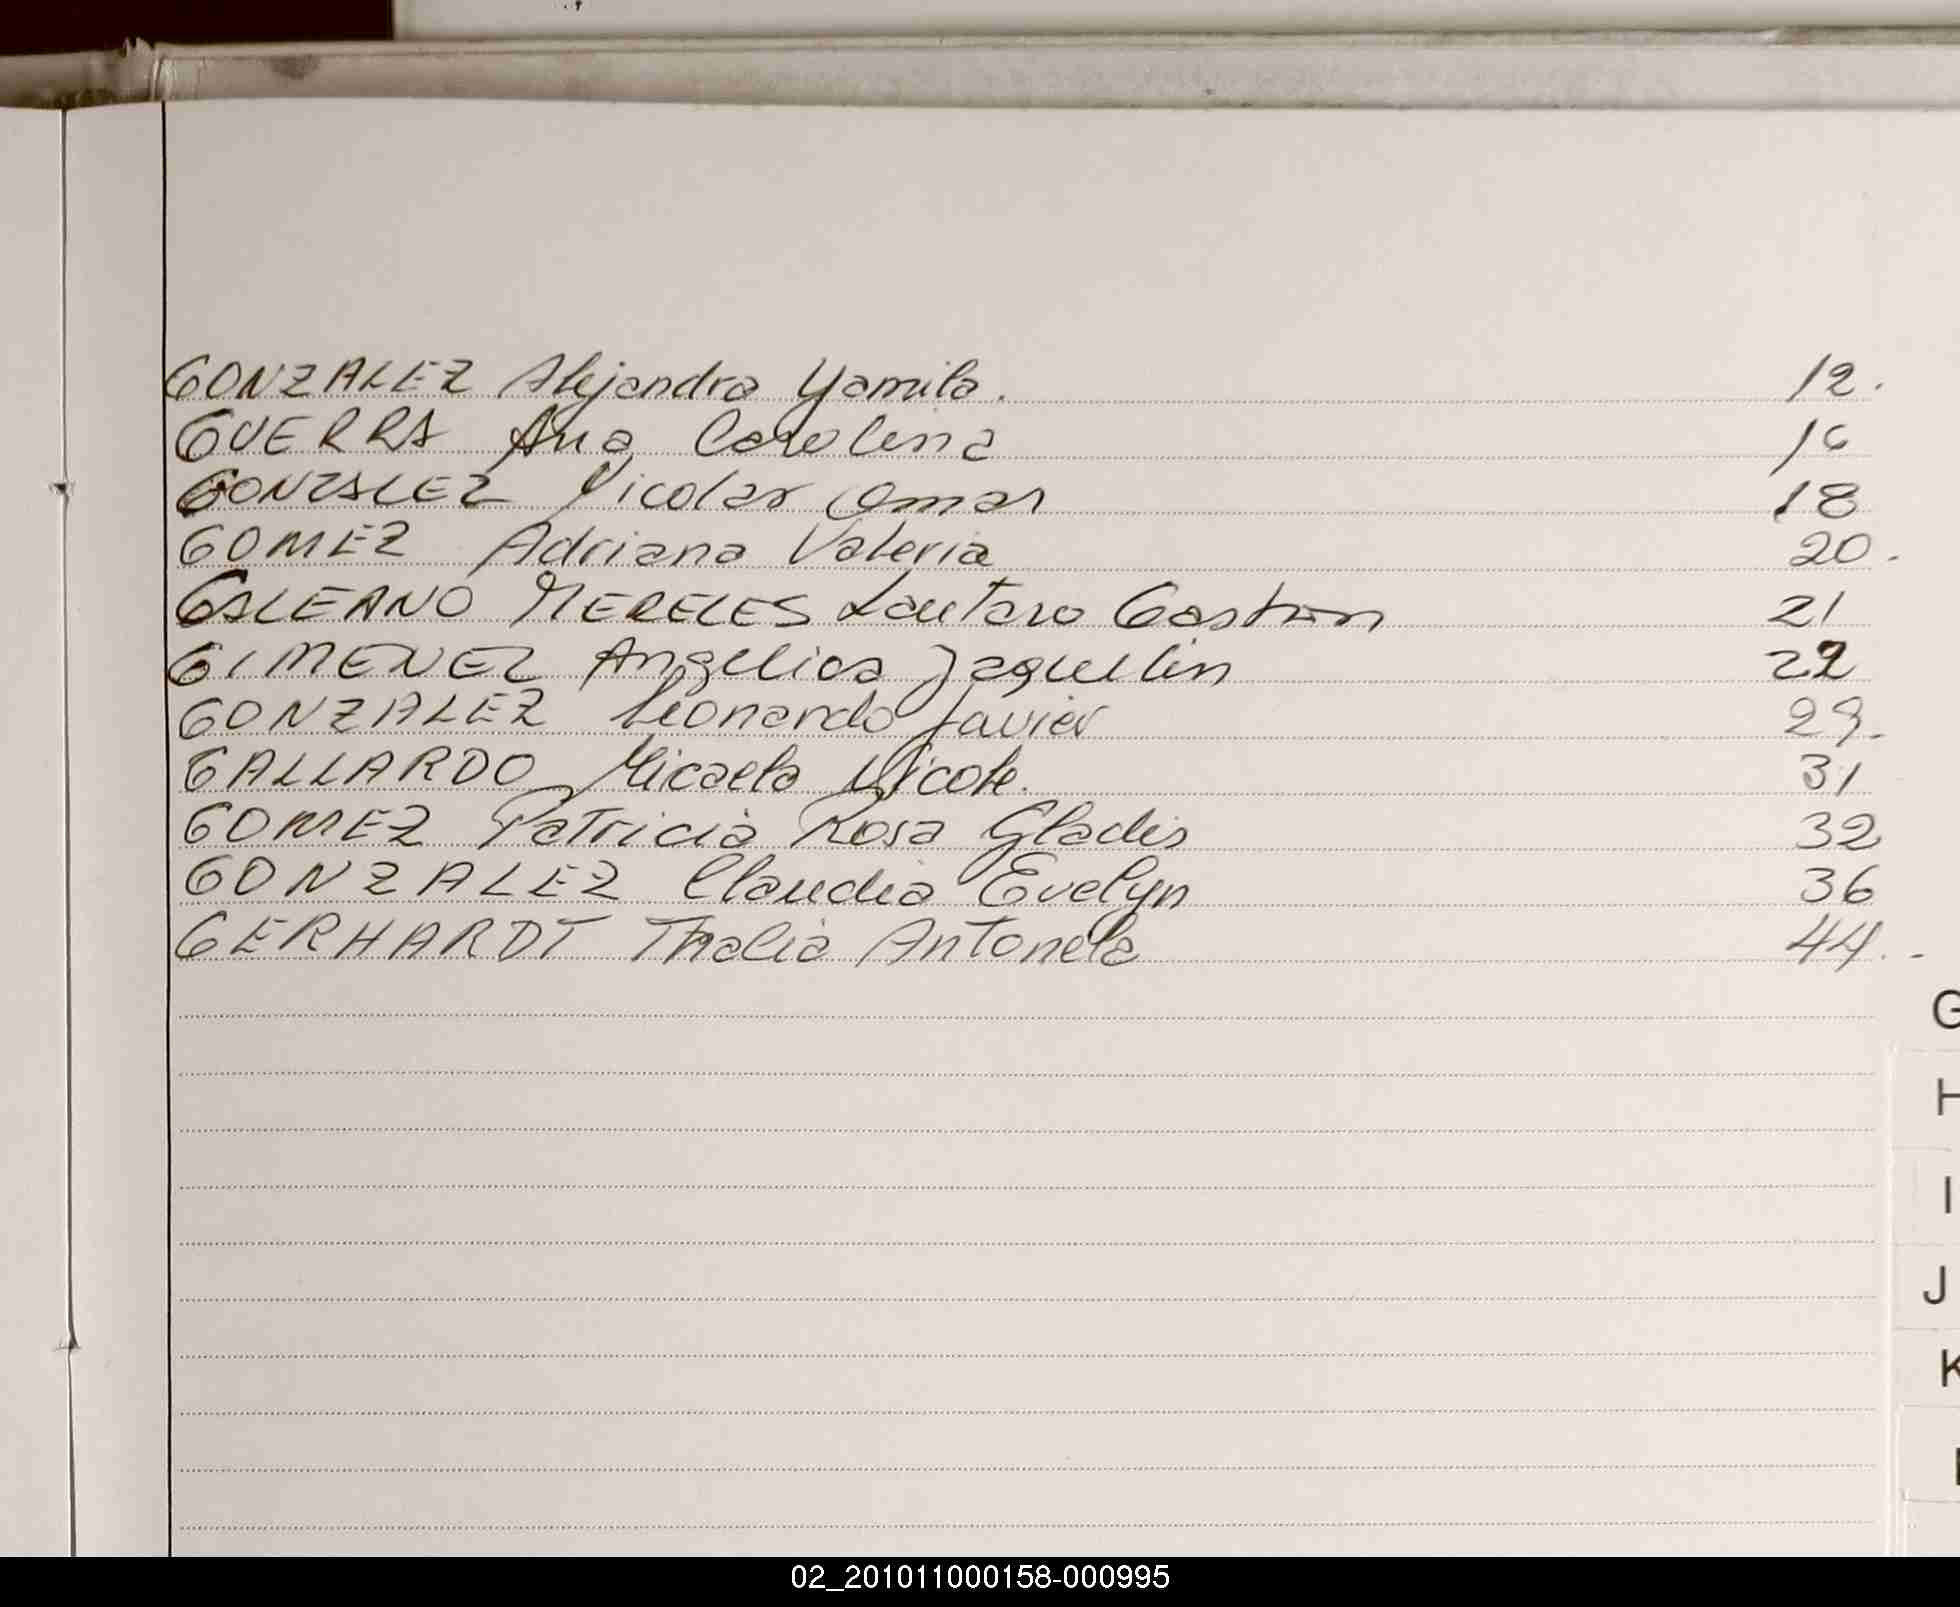 GONZALEZ Alejandra Yamila. 12.
GUERRA Ana Carolina 16
GONZALEZ Nicolas Omar 18
GOMEZ Adriana Valeria 20.
GALEANO MERELES Lautaro Gaston 21
GIMENEZ Angelica Jaquelin 22
GONZALEZ Leonardo Javier 29.
GALLARDO Micaela Nicole. 31
GOMEZ Patricia Rosa Gladis 32
GONZALEZ Claudia Evelyn 36
GERHARDT Thalia Antonela 44.-
G
H
I
J
K
02_201011000158-000995